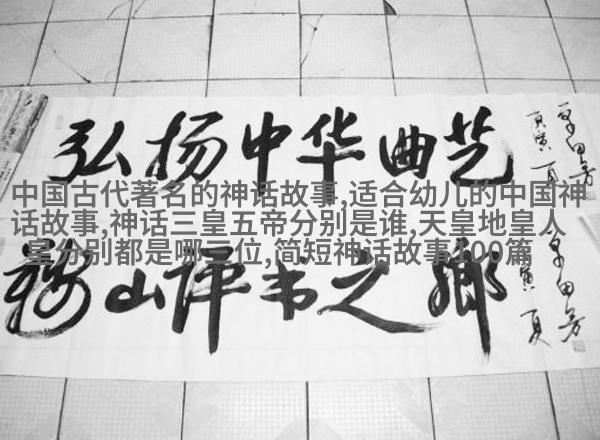 弘扬中华曲艺
单田芳
庚寅 夏
中国古代著名的神话故事,适合幼儿的中国神
话故事,神话三皇五帝分别是谁,天皇地皇人
皇分别都是哪三位,简短神话故事100篇
鞍山评书之鄉
单田芳
庚寅 夏